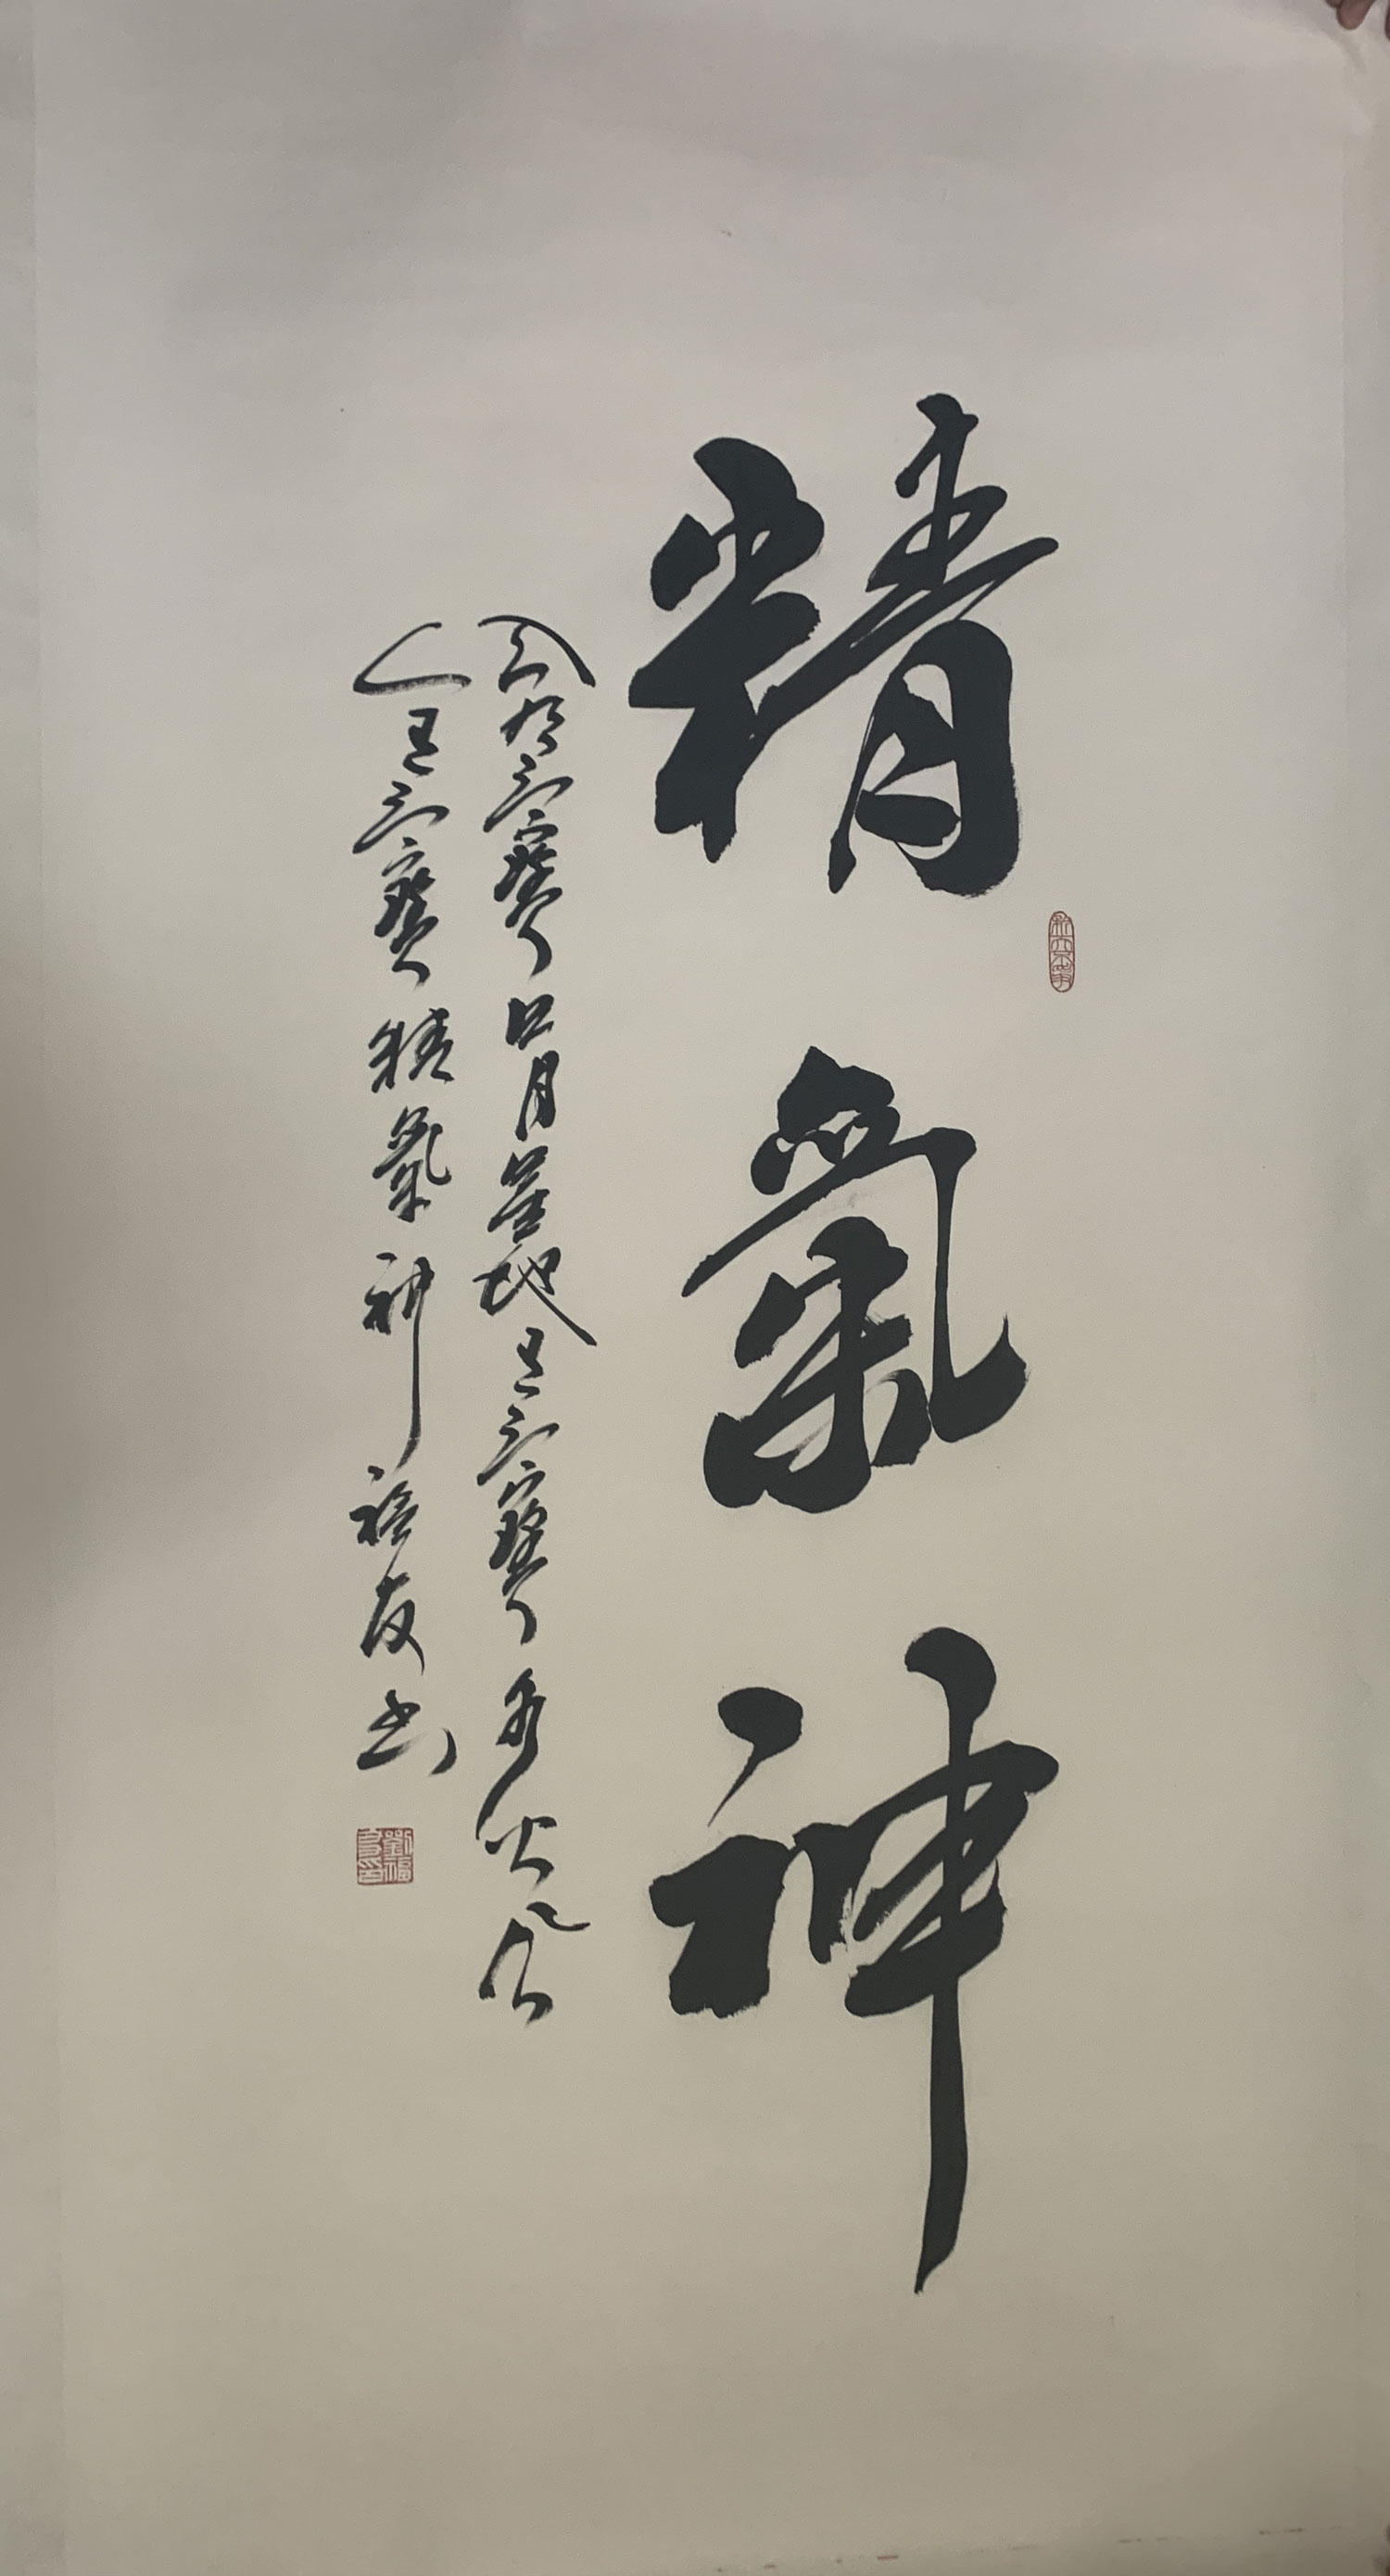 精氣神
天有三寶日月星地有三寶水火風
人有三寶精氣神福友书
劉福友印